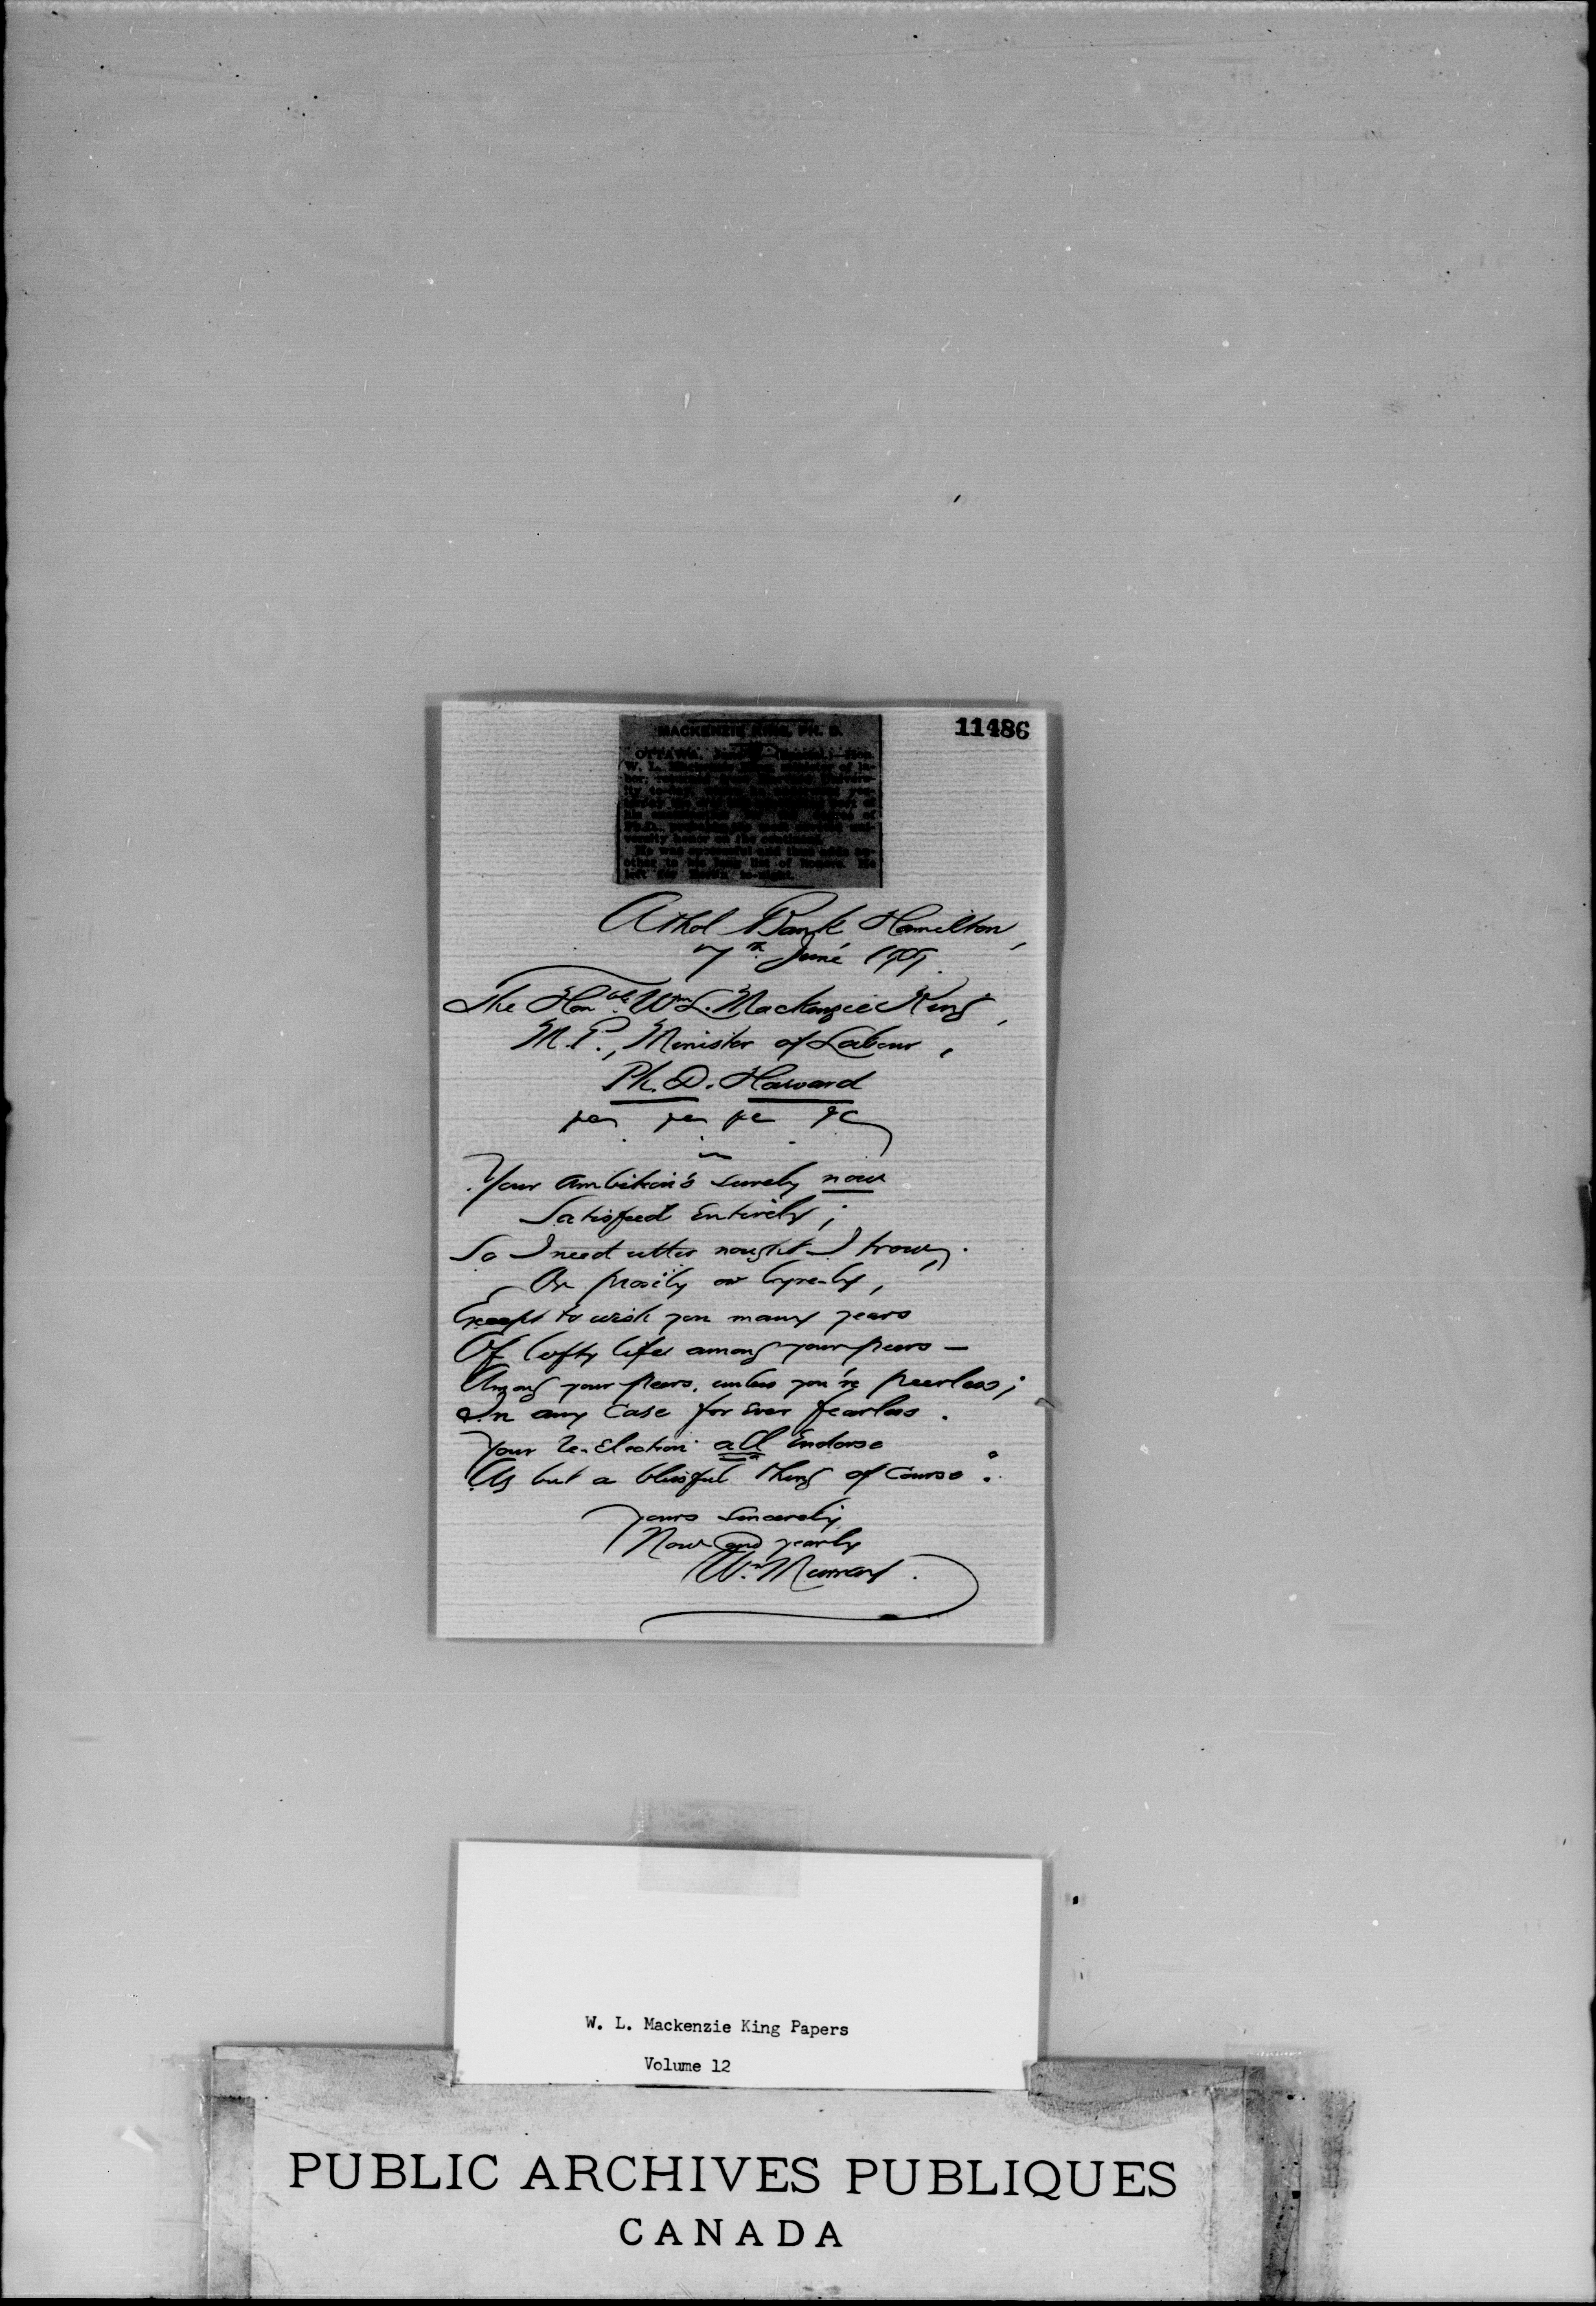 11486
MACKENZIE KING, PH. D.
OTTAWA, Hon.
W. L. of la-
He was successful and thus adds an-
other to his long list of honors. He
left for to-night.
Athol Bank Hamilton,
7th June 1909.
The Honble. Wm L. Mackenzie King,
M.P., Minister of Labour,
Ph. D. Harvard
&c &c &c &c
Your ambition's surely now
Satisfied Entirely;
So I need utter nought I trow,
Or prosily or lyre-ly,
Except to wish you many years
Of lofty life among your peers —
Among your peers, unless you're peerless;
In any Case for Ever fearless.
Your Re-Election all Endorse
As but a blissful thing of Course.
Yours Sincerely
Now and yearly
Wm. Murray.
W. L. Mackenzie King Papers
Volume 12
PUBLIC ARCHIVES PUBLIQUES
CANADA